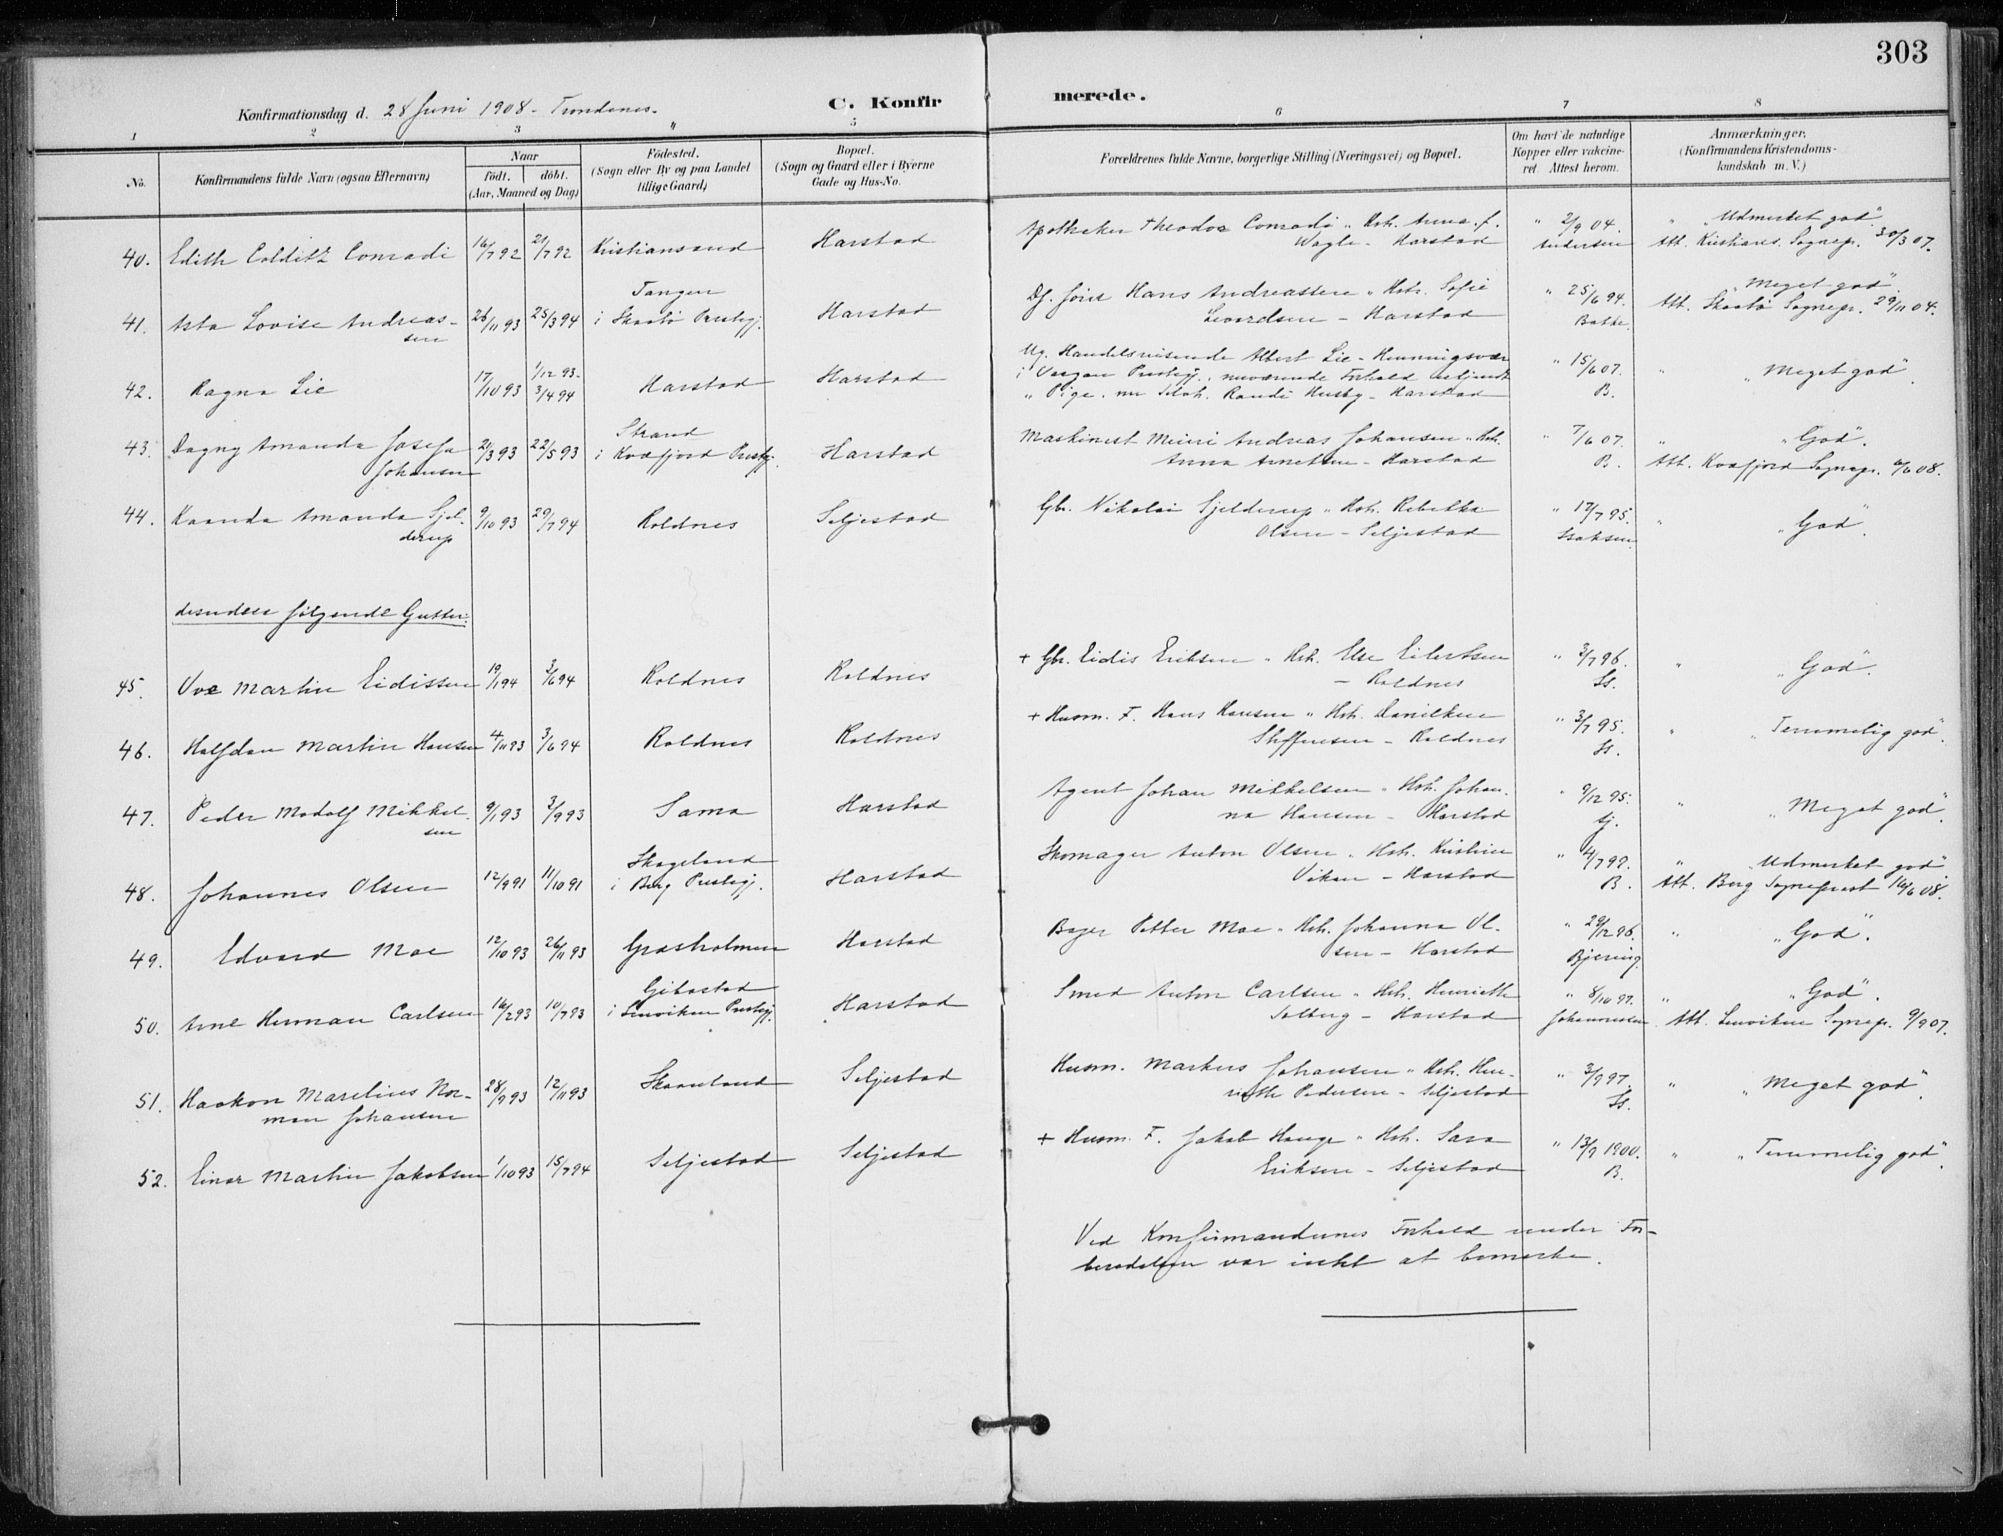 303
Konfirmationsdag d. 28 Juni 1908 - Trondenes.
C. Konfir merede.
1 2 3 " 5 6 7 8
No.
Konfirmandens fulde Navn (ogsaa Efternavn)
Naar
født. døbt.
(Aar, Maaned og Dag)
Fødested.
(Sogn eller By og paa Landet
tillige Gaard)
Bopæl.
(Sogn og Gaard eller i Byerne
Gade og Hus-No.
Forældrenes fulde Navne, borgerlige Stilling (Næringsvei) og Bopæl.
Om havt de naturlige
Kopper eller vakcine-
ret. Attest herom.
Anmærkninger.
(Konfirmandens Kristendoms-
kundskab m. V.)
40. Edith Colditz Conradi 16/7 92 21/7 92 Kristiansand Harstad Apotheker Theodor Conradi " Hst. Anna f. " 2/9 04. " "Udmerket god".
Wagle - Harstad Andersen Att. Kristians. Sognepr. 30/3 07.
Tangen
41. Asta Lovise Andreas- 26/11 93 25/3 94 i Skaatø Prestegj. Harstad Hans Andreassen " Hst. Sofie " 25/6 94. "Meget god".
sen - Harstad Att. Skaatø Sognepr. 29/11 04.
42. Ragna Lie 17/10 93 1/12 93. 3/4 94 Harstad Harstad Ug. Handelsreisende Albert Lie - Henningsvær " 15/6 07. " "Meget god".
i Vaagan Prestegj., nuværende Forhold ubekjendt
" Pige. nu Randi Husby - Harstad B.
Strand
43. Dagny Amanda Josefa 21/3 93 22/5 93 i Kvæfjord Prestegj. Harstad Maskinist Meier Andreas Johansen " Hst. " 7/6 07. " "God".
Johansen Anna Arnetsen - Harstad B. Att. Kvæfjord Sognepr. 6/6 08.
44. Kaanda Amanda Gjel- 9/10 93 29/7 94 Roldnes Seljestad Gbr. Nikolai Gjelderup " Hst. Rebekka " 17/7 95. " "God".
derup Olsen - Seljestad
desuden følgende Gutter:
45. Ove Martin Eidissen 19/1 94 3/6 94 Roldnes Roldnes + Gbr. Eidis Eriksen " Hst. Else Eilertsen " 3/7 96. " "God".
- Roldnes Ss.
46. Halfdan Martin Hansen 4/11 93 3/6 94 Roldnes Roldnes + Husm. F. Hans Hansen " Hst. Danilkea " 3/7 95. " "Temmelig god".
Steffensen - Roldnes Ss.
47. Peder Modolf Mikkel- 9/1 93 3/9 93 Sama Harstad Agent Johan Mikkelsen " Hst. Johan- " 9/12 95. " "Meget god".
sen na Hansen - Harstad Gj.
Skageland
48. Johannes Olsen 12/9 91 11/10 91 i Berg Prestegj. Harstad Skomager Anton Olsen " Hst. Kristine " 4/7 99. " "Udmerket god".
Viken - Harstad B. Att. Berg Sogneprest 16/6 08.
49. Edvard Moe 12/10 93 26/11 93 Græsholmen Harstad Bager Petter Moe " Hst. Johanna Ol- " 29/12 96. " "God".
sen - Harstad Bjering.
Gibostad
50. Arne Herman Carlsen 16/2 93 10/7 93 i Lenviken Prestegj. Harstad Smed Anton Carlsen " Hst. Henriette " 8/10 97. " "God".
Solberg - Harstad Johannessen Att. Lenviken Sognepr. 9/9 07.
51. Haakon Marelius Nor- 28/9 93 12/11 93 Skaanland Seljestad Husm. Markus Johansen " Hst. Hen- " 3/9 97. " "Meget god".
man Johansen riette Pedersen - Seljestad Ss.
52. Einar Martin Jakobsen 1/10 93 15/7 94 Seljestad Seljestad + Husm. F. Jakob Hauge " Hst. Sara " 13/9 1900. " "Temmelig god".
Eriksen - Seljestad B.
Ved Konfirmandernes Forhold under For-
beredelsen var intet at bemerke.